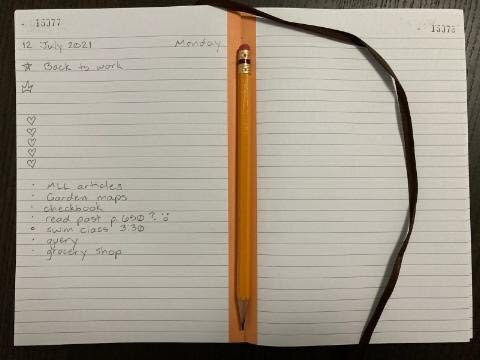 15377
15378
12 July 2021 Monday
Back to work
MLL articles
Garden maps
checkbook
read past p. 650?
swim class 3.30
query
grocery shop